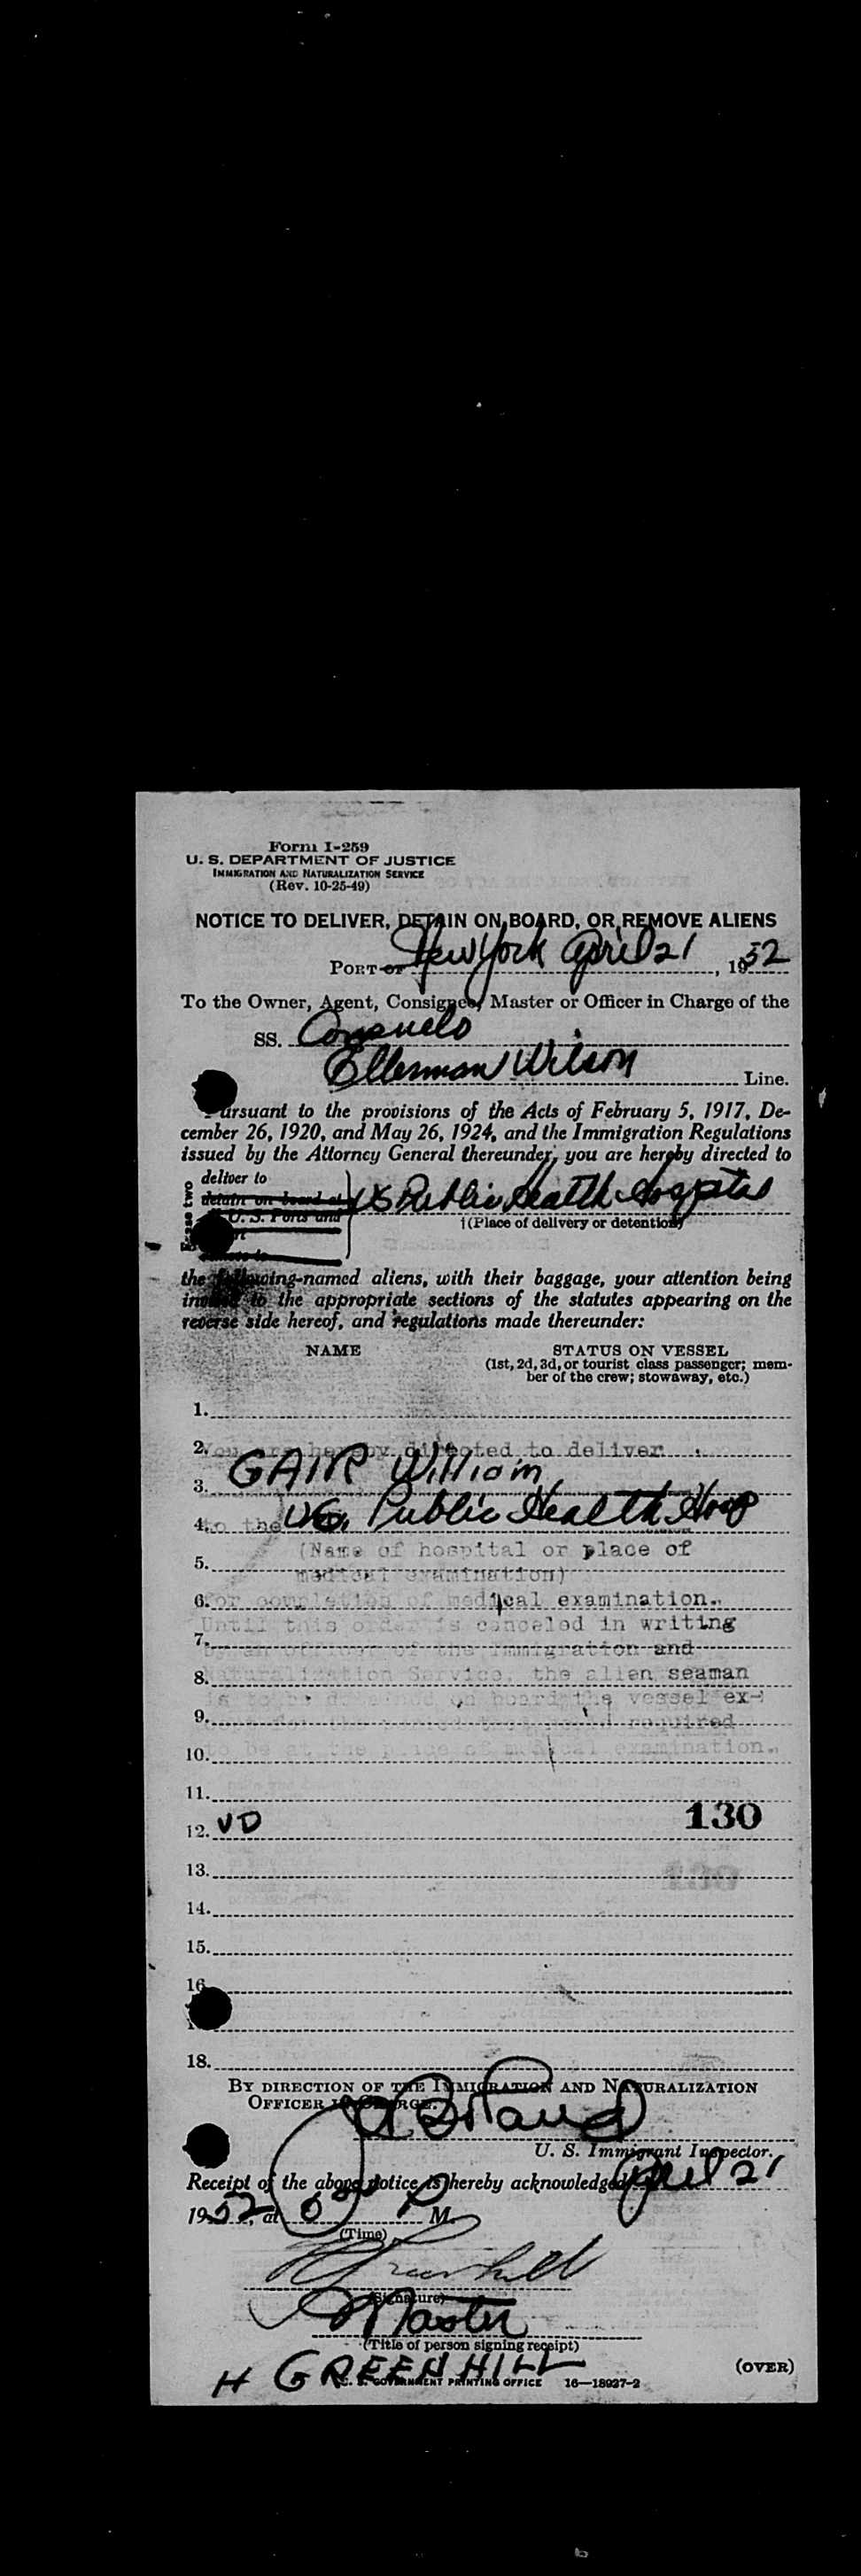 Form I-259
U. S. DEPARTMENT OF JUSTICE
IMMIGRATION AND NATURALIZATION SERVICE
(Rev. 10-25-49)
NOTICE TO DELIVER, DETAIN ON BOARD, OR REMOVE ALIENS
PORT OF New York April 21, 1952
To the Owner, Agent, Consignee, Master or Officer in Charge of the
SS. Consuelo
Ellerman Wilson Line.
Pursuant to the provisions of the Acts of February 5, 1917, De-
cember 26, 1920, and May 26, 1924, and the Immigration Regulations
issued by the Attorney General thereunder, you are hereby directed to
deliver to
detain on board at
U. S. Ports and
US Public Health Hospital
†(Place of delivery or detention)
the following-named aliens, with their baggage, your attention being
invited to the appropriate sections of the statutes appearing on the
reverse side hereof, and regulations made thereunder:
NAME STATUS ON VESSEL
(1st, 2d, 3d, or tourist class passenger; mem-
ber of the crew; stowaway, etc.)
1.
2. You are hereby directed to deliver
GAIR William
3.
4. to the U.S. Public Health Hosp
(Name of hospital or place of
5. medical examination)
6. for completion of medical examination.
Until this order is canceled in writing
7. by an officer of the Immigration and
8. Naturalization Service, the alien seaman
is to be detained on board the vessel ex-
9. required
10. to be at the place of medical examination.
11.
12. VD 130
13.
14.
15.
16.
18.
BY DIRECTION OF THE IMMIGRATION AND NATURALIZATION
OFFICER IN CHARGE:
U. S. Immigrant Inspector.
Receipt of the above notice is hereby acknowledged April 21
1952, at P M.
(Time)
H Greenhill
(Signature)
Master
(Title of person signing receipt)
H GREENHILL
U. S. GOVERNMENT PRINTING OFFICE 16—18927-2
(OVER)